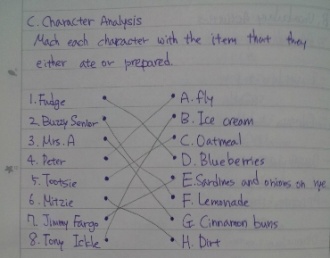 C. Character Analysis
Mach each character with the item that they
either ate or prepared.
1. Fudge
A. fly
2. Buzzy Senior
B. Ice cream
3. Mrs. A
C. Oatmeal
4. Peter
D. Blueberries
5. Tootsie
E. Sardines and onions on rye
6. Mitzie
F. Lemonade
7. Jimmy Fargo
G. Cinnamon buns
8. Tony Ickle
H. Dirt